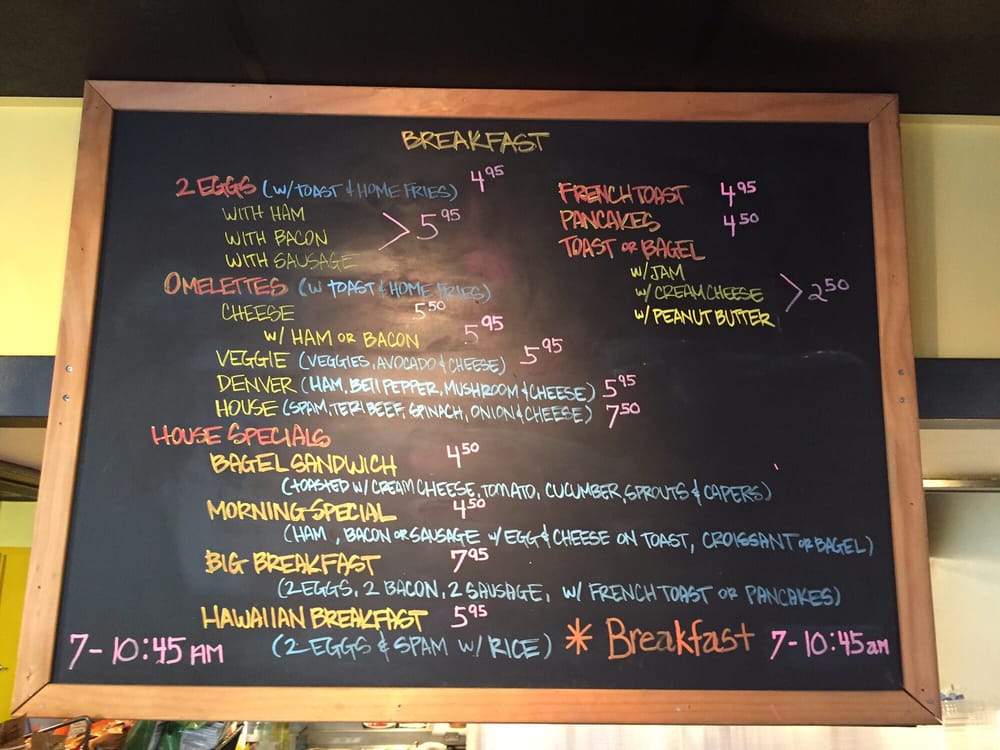 BREAKFAST
2 EGGS (W/TOAST & HOME FRIES) 4.95
WITH HAM
WITH BACON > 5.95
WITH SAUSAGE
OMELETTES (W TOAST & HOME FRIES)
CHEESE 5.50
W/ HAM OR BACON 5.95
VEGGIE (VEGGIES, AVOCADO & CHEESE) 5.95
DENVER (HAM, BELL PEPPER, MUSHROOM & CHEESE) 5.95
HOUSE (SPAM, TERI BEEF, SPINACH, ONION & CHEESE) 7.50
HOUSE SPECIALS
BAGEL SANDWICH 4.50
(TOASTED W/ CREAM CHEESE, TOMATO, CUCUMBER, SPROUTS & CAPERS)
MORNING SPECIAL 4.50
(HAM, BACON OR SAUSAGE W/ EGG & CHEESE ON TOAST, CROISSANT OR BAGEL)
BIG BREAKFAST 7.95
(2 EGGS, 2 BACON, 2 SAUSAGE, W/ FRENCH TOAST OR PANCAKES)
HAWAIIAN BREAKFAST 5.95
(2 EGGS & SPAM W/ RICE)
FRENCH TOAST 4.95
PANCAKES 4.50
TOAST OR BAGEL
W/ JAM
W/ CREAM CHEESE > 2.50
W/ PEANUT BUTTER
7-10:45 AM
* Breakfast 7-10:45am